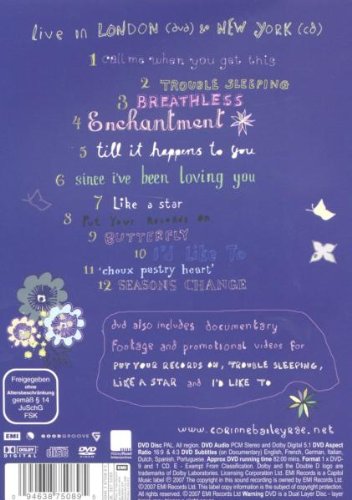 live in LONDON (dvd) & NEW YORK (cd)
1 call me when you get this
2 TROUBLE SLEEPING
3 BREATHLESS
4 Enchantment
5 till it happens to you
6 since i've been loving you
7 Like a star
8 Put Your Records On
9 BUTTERFLY
10 I'd Like To
11 'choux pastry heart'
12 SEASONS CHANGE
dvd also includes documentary
footage and promotional videos for
PUT YOUR RECORDS ON, TROUBLE SLEEPING,
LIKE A STAR and I'D LIKE TO
www.corinnebaileyrae.net
Freigegeben
ohne
Altersbeschränkung
gemäß § 14
JuSchG
FSK
EMI
DOLBY
DIGITAL
GOOD GROOVE
DVD Disc PAL. All region. DVD Audio PCM Stereo and Dolby Digital 5.1 DVD Aspect
Ratio 16:9 & 4:3 DVD Subtitles (on Documentary) English, French, German, Italian,
Dutch, Spanish, Portuguese. Approx DVD running time 82.00 mins. Format 1 x DVD-
9 and 1 CD. E - Exempt From Classification. Dolby and the Double D logo are
trademarks of Dolby Laboratories. Licensing Corporation. EMI Records is a Capitol
Label ℗ 2007 The copyright in this sound recording is owned by EMI Records Ltd.
© 2007 EMI Records Ltd
9463875089